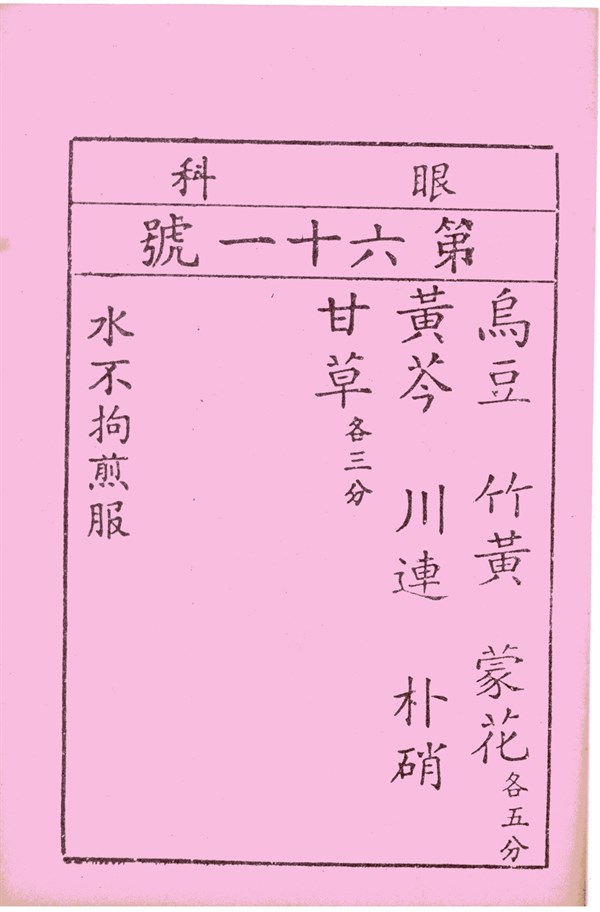 眼科
第六十一號
烏豆 竹黃 蒙花各五分
黃芩 川連 朴硝
甘草各三分
水不拘煎服